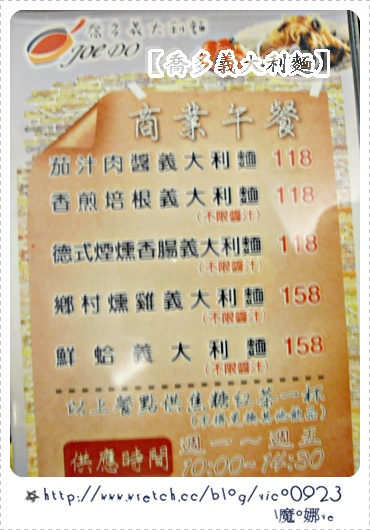 喬多義大利麵
JOE DO
【喬多義大利麵】
商業午餐
茄汁肉醬義大利麵 118
香煎培根義大利麵 118
(不限醬汁)
德式煙燻香腸義大利麵 118
(不限醬汁)
鄉村燻雞義大利麵 158
(不限醬汁)
鮮蛤義大利麵 158
以上餐點供焦糖紅茶一杯
(不得更換其他飲品)
供應時間 週一~週五
10:00~14:30
http://www.wretch.cc/blog/vico0923
魔°娜vc